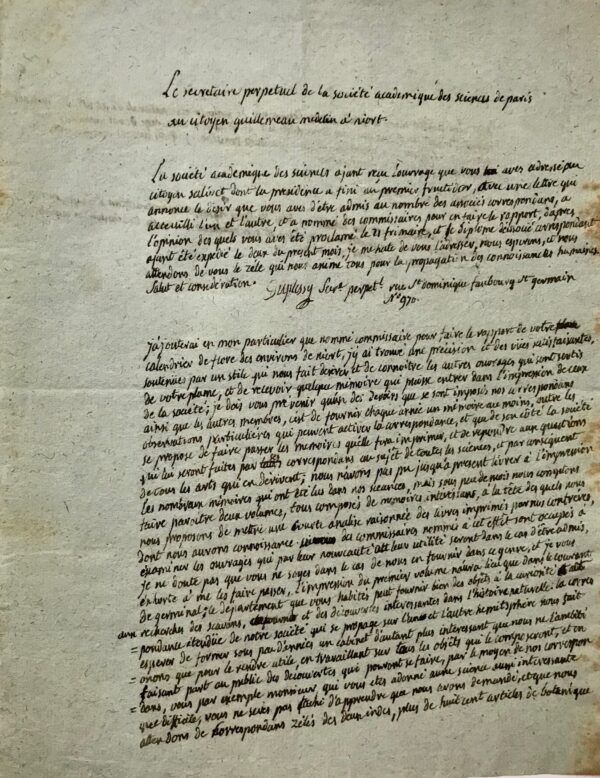 Le secretaire perpetuel de la société academique des sciences de paris
au citoyen guillemeau medecin a niort.
La société academique des sciences ajant recu l'ouvrage que vous lui aves adressé par
citoyen salivet dont la presidence a fini au premier fructidor, avec une lettre qui
annonce le desir que vous aves d'être admis au nombre des associés correspondans, a
accueilli l'un et l'autre, et a nommé des commissaires pour en faire le rapport, d'apres
l'opinion des quels vous aves été proclamé le 21 frimaire, et le diplome de associé correspondant
ajant été expedié le deux du present mois, je me hate de vous l'adresser, nous esperons, et nous
attendons de vous le zele qui nous anime tous pour la propagation des connoissances humaines.
Salut et consideration.
Duplessy Secre. perpetl. rue St dominique faubourg St germain
No 970.
j'ajouterai en mon particulier que nommé commissaire pour faire le rapport de votre
calendrier de flore des environs de niort, j'y ai trouvé une précision et des vues satisfaisantes,
soutenues par un stile qui nous fait desirer et de connoitre les autres ouvrages qui sont sortis
de votre plume, et de recevoir quelque mémoire qui puisse entrer dans l'impression de ceux
de la société; je dois vous prevenir aussi des devoirs que se sont imposés nos correspondans
ainsi que les autres membres, c'est de fournir chaque année un memoire au moins, outre les
observations particulieres qui peuvent activer la correspondance, et que de son côté la société
se propose de faire passer les memoires qu'elle fera imprimer, et de repondre aux questions
qui lui seront faites par correspondans au sujet de toutes les sciences, et par consequent
de tous les arts qui en dérivent; nous n'avons pas pu jusqu'a present livrer a l'impression
les nombreux mémoires qui ont été lus dans nos sceances, mais sous peu de mois nous comptons
faire paroitre deux volumes, tous composés de memoires interessans, a la tête des quels nous
nous proposons de mettre une courte analise raisonnée des livres imprimés par nos confreres,
dont nous aurons connoissance. des commissaires nommés a cet effet sont occupés a
examiner les ouvrages qui par leur nouveauté et leur utilité seront dans le cas d'être admis,
je ne doute pas que vous ne soyes dans le cas de nous en fournir dans ce genre, et je vous
exhorte a me les faire passer, l'impression du premier volume n'aura lieu que dans le courant
de germinal; le département que vous habités peut fournir bien des objets a la curiosité et
aux recherches des scavans, et des découvertes interessantes dans l'histoire naturelle. la corres
= pondance étendue de notre société qui se propage sur l'un et l'autre hemisphere nous fait
esperer de former sous peu d'années un cabinet d'autant plus interessant que nous ne l'ambiti
= onons que pour le rendre utile, en travaillant sur tous les objets qui le composeront, et en
faisant part au public des decouvertes qui pourront se faire, par le moyen de nos correspon
= dans, vous par exemple monsieur, qui vous etes adonné a une science aussi interessante
que difficile, vous ne seres pas fâché d'apprendre que nous avons demandé, et que nous
attendons de correspondans zélés des deux indes, plus de huit cent articles de botanique